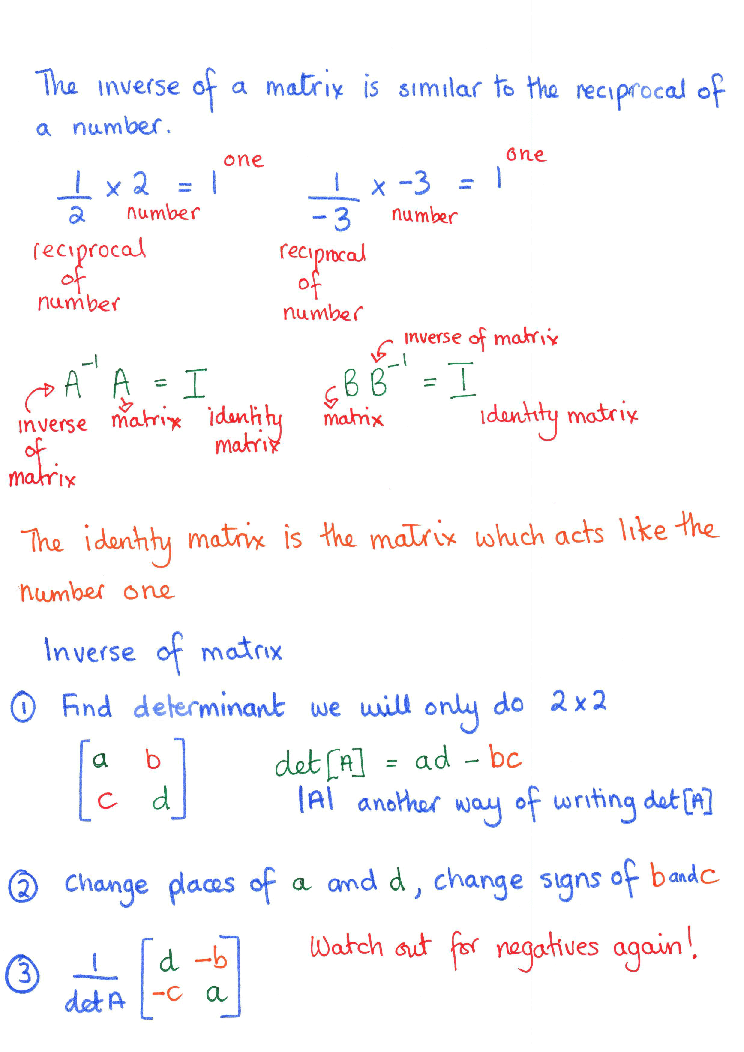 The inverse of a matrix is similar to the reciprocal of
a number.
1/2 × 2 = 1 one
number
reciprocal
of
number
1/-3 × -3 = 1 one
number
reciprocal
of
number
A⁻¹ A = I
inverse
of
matrix
matrix
identity
matrix
inverse of matrix
B B⁻¹ = I
matrix
identity matrix
The identity matrix is the matrix which acts like the
number one
Inverse of matrix
① Find determinant we will only do 2×2
[a b
c d]
det[A] = ad - bc
|A| another way of writing det[A]
② Change places of a and d, change signs of b and c
③ 1/det A [d -b
-c a]
Watch out for negatives again!